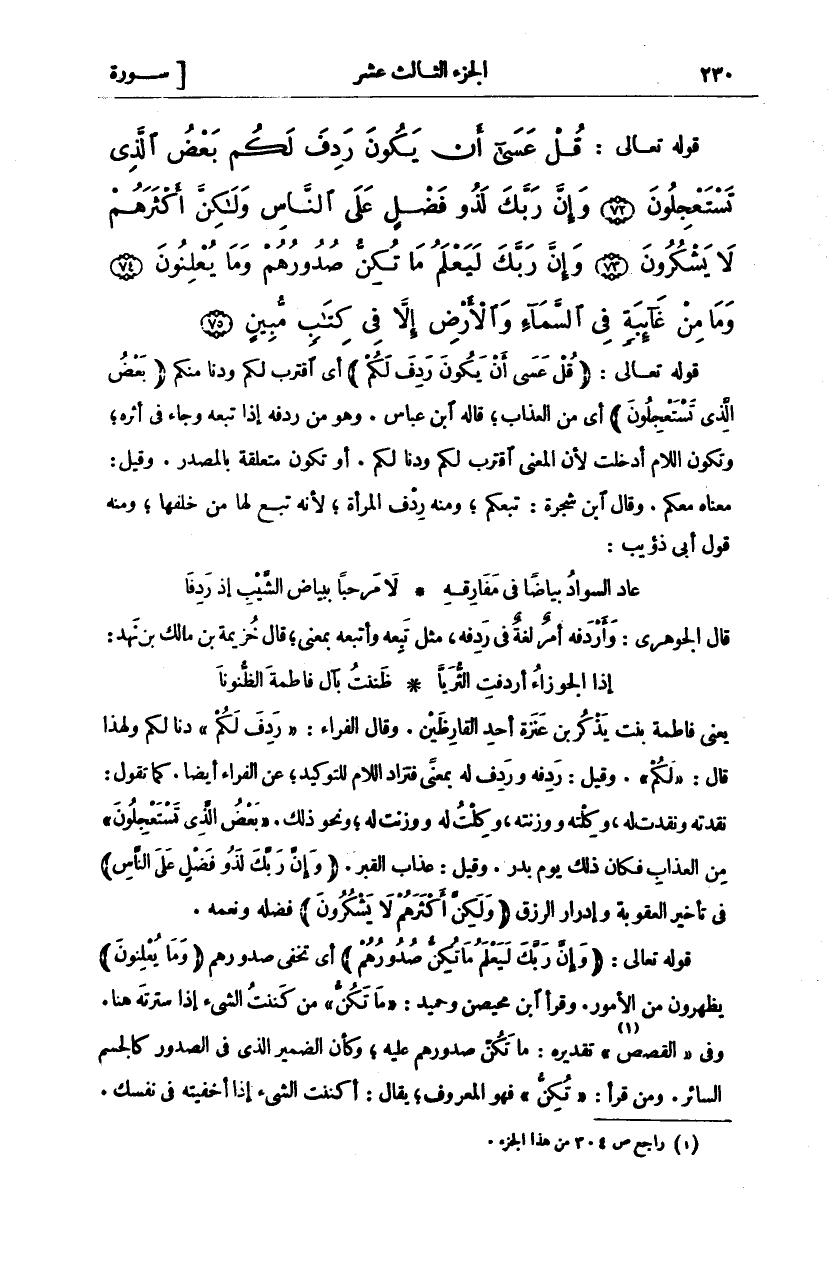 ٢٣٠ الجزء الثالث عشر [ سورة
قوله تعالى : قُلْ عَسَىٰٓ أَن يَكُونَ رَدِفَ لَكُم بَعْضُ ٱلَّذِى
تَسْتَعْجِلُونَ ﴿٧٢﴾ وَإِنَّ رَبَّكَ لَذُو فَضْلٍ عَلَى ٱلنَّاسِ وَلَٰكِنَّ أَكْثَرَهُمْ
لَا يَشْكُرُونَ ﴿٧٣﴾ وَإِنَّ رَبَّكَ لَيَعْلَمُ مَا تُكِنُّ صُدُورُهُمْ وَمَا يُعْلِنُونَ ﴿٧٤﴾
وَمَا مِنْ غَآئِبَةٍ فِى ٱلسَّمَآءِ وَٱلْأَرْضِ إِلَّا فِى كِتَٰبٍ مُّبِينٍ ﴿٧٥﴾
قوله تعالى : ﴿ قُلْ عَسَى أَنْ يَكُونَ رَدِفَ لَكُمْ ﴾ أى ٱقترب لكم ودنا منكم ﴿ بَعْضُ
الَّذِى تَسْتَعْجِلُونَ ﴾ أى من العذاب؛ قاله ٱبن عباس . وهو من ردفه إذا تبعه وجاء فى أثره؛
وتكون اللام أدخلت لأن المعنى ٱقترب لكم ودنا لكم . أو تكون متعلقة بالمصدر . وقيل :
معناه معكم . وقال ٱبن شجرة : تبعكم ؛ ومنه رِدْف المرأة ؛ لأنه تبع لها من خلفها ؛ ومنه
قول أبى ذؤيب :
عاد السوادُ بياضًا فى مَفَارِقه * لَا مَرحبًا ببياض الشَّيْبِ إذ رَدِفَا
قال الجوهرى : وَأَرْدَفه أمرٌ لغةٌ فى رَدِفه، مثل تَبِعه وأتبعه بمعنى؛ قال خُزيمة بن مالك بن نَهد :
إذا الجوزاءُ أردفتِ الثُّرَيَّا * ظَننتُ بآل فاطمةَ الظُّنونَا
يعنى فاطمة بنت يَذْكُر بن عَنَزة أحدِ القارِظَيْن . وقال الفراء : « رَدِفَ لَكُمْ » دنا لكم ولهذا
قال : «لَكُمْ» . وقيل : رَدِفه وردِف له بمعنًى فتزاد اللام للتوكيد؛ عن الفراء أيضا . كما تقول :
نقدته ونقدت له، وكِلْته ووزنته، وكِلْتُ له ووزنت له؛ ونحو ذلك . «بَعْضُ الَّذِى تَسْتَعْجِلُونَ»
مِن العذابِ فكان ذلك يوم بدر . وقيل : عذاب القبر . ﴿ وَإِنَّ رَبَّكَ لَذُو فَضْلٍ عَلَى النَّاسِ ﴾
فى تأخير العقوبة وإدرار الرزق ﴿ وَلَكِنَّ أَكْثَرَهُمْ لَا يَشْكُرُونَ ﴾ فضله ونعمه .
قوله تعالى : ﴿ وَإِنَّ رَبَّكَ لَيَعْلَمُ مَا تُكِنُّ صُدُورُهُمْ ﴾ أى تخفى صدورهم ﴿ وَمَا يُعْلِنُونَ ﴾
يظهرون من الأمور. وقرأ ٱبن محيصن وحميد : «مَا تَكُنُّ» من كَننتُ الشىء إذا سترتَه هنا.
وفى « القصص (١) » تقديره : ما تَكُنّ صدورهم عليه ؛ وكأن الضمير الذى فى الصدور كالجسم
السائر. ومن قرأ : « تُكِنُّ » فهو المعروف؛ يقال : أكننت الشىء إذا أخفيته فى نفسك .
(١) راجع ص ٣٠٤ من هذا الجزء .